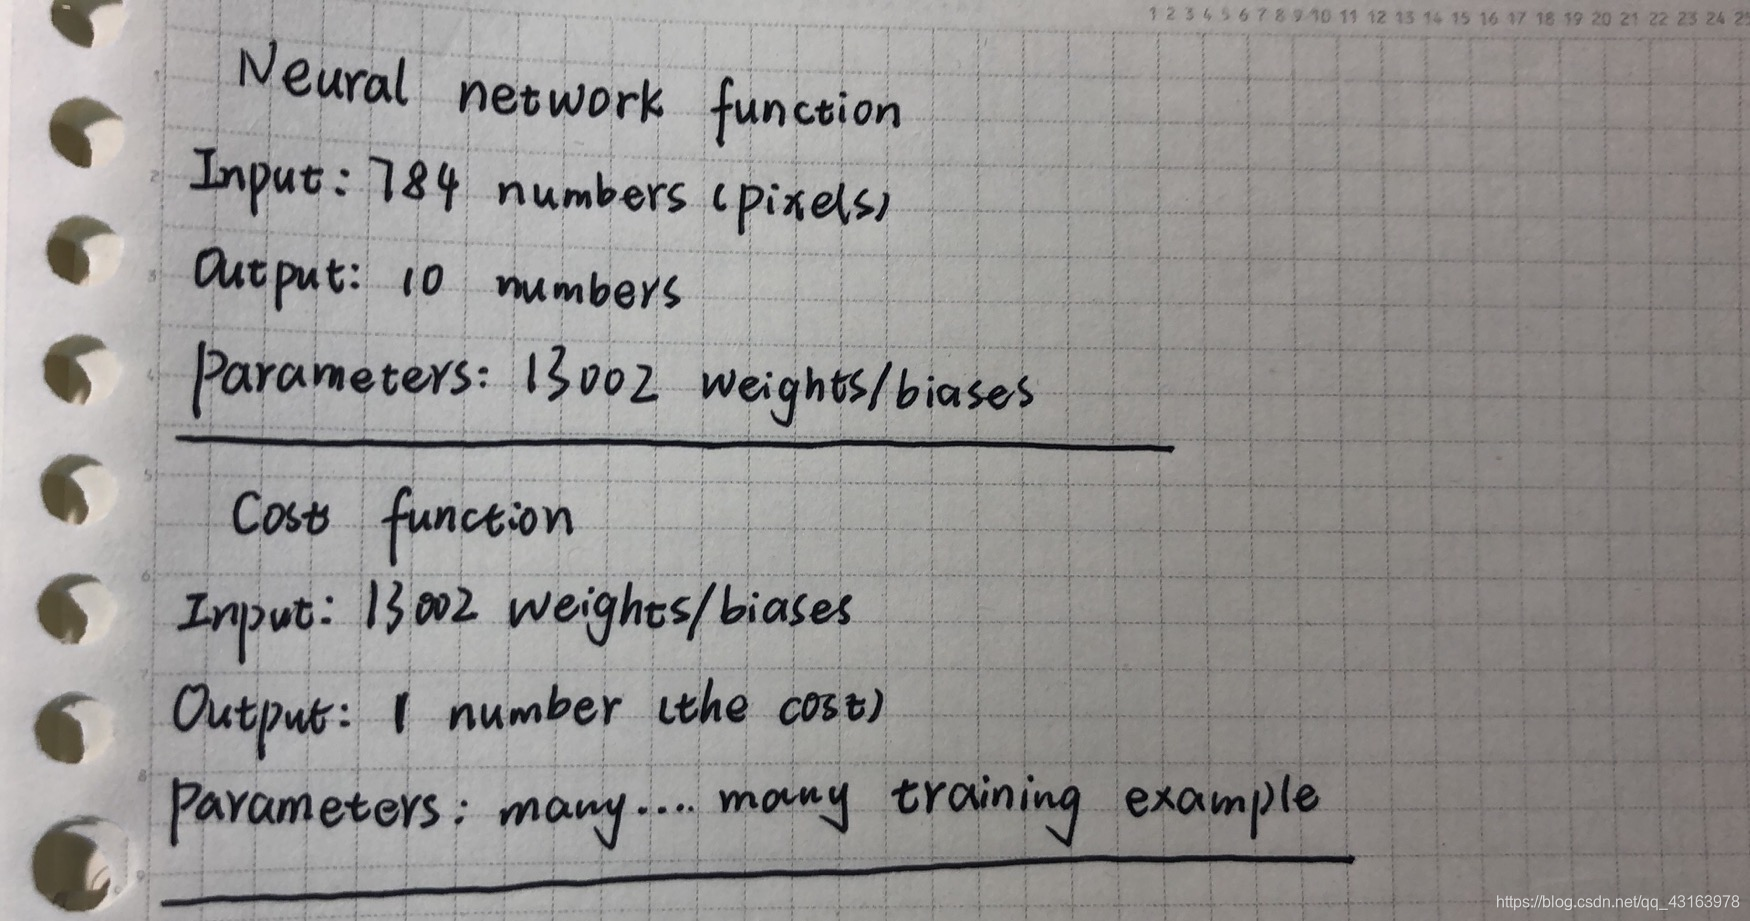 1 2 3 4 5 6 7 8 9 10 11 12 13 14 15 16 17 18 19 20 21 22 23 24 25
Neural network function
1
Input: 784 numbers (pixels)
2
Output: 10 numbers
3
Parameters: 13002 weights/biases
4
5
Cost function
6
Input: 13002 weights/biases
7
Output: 1 number (the cost)
8
Parameters: many.... many training example
9
https://blog.csdn.net/qq_43163978